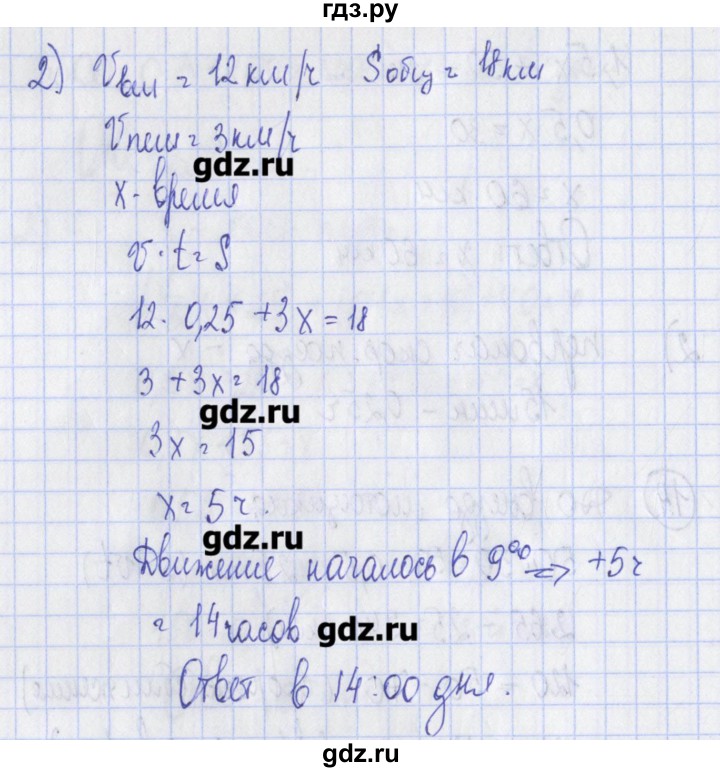 гдз.ру
2) Vвел = 12 км/ч   Sобщ = 18 км
Vпеш = 3 км/ч
gdz.ru
x - время
v · t = S
12 · 0,25 + 3x = 18
3 + 3x = 18
gdz.ru
3x = 15
x = 5 ч.
gdz.ru
Движение началось в 9⁰⁰ => +5ч
= 14 часов
gdz.ru
Ответ в 14:00 дня.
gdz.ru